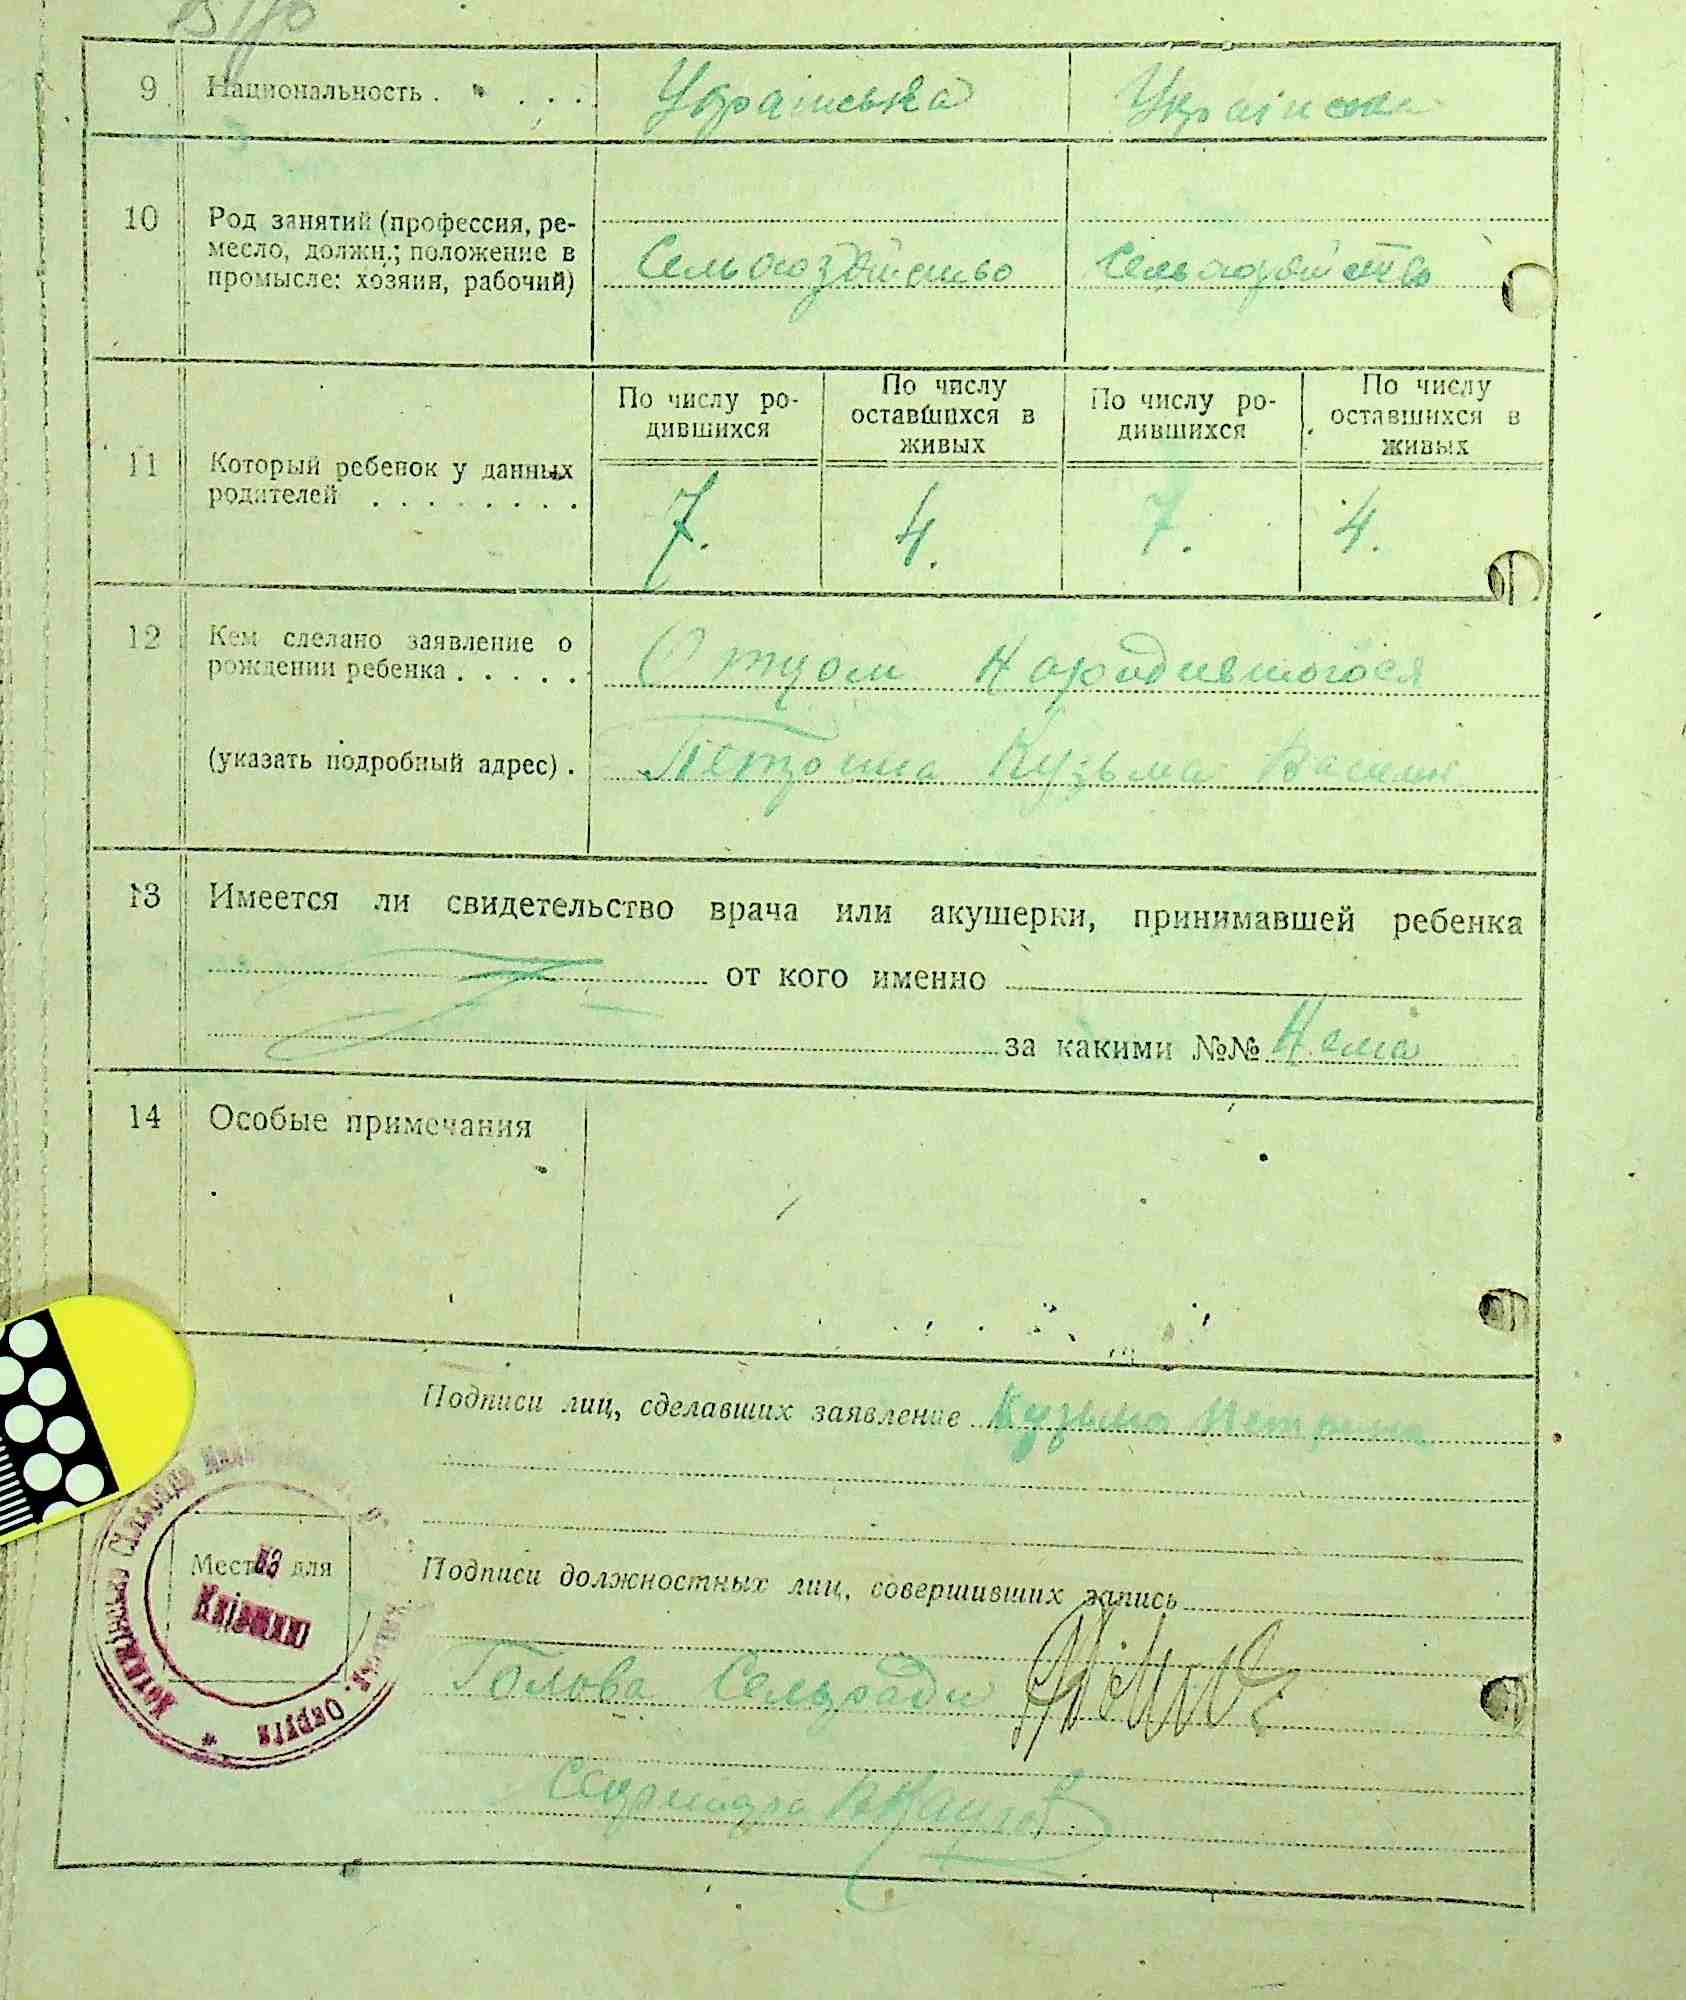 9 Национальность . . . . . Українська Українска
10 Род занятий (профессия, ре-
месло, должн.; положение в
промысле: хозяин, рабочий)
По числу ро-
дившихся
По числу
оставшихся в
живых
По числу ро-
дившихся
По числу
оставшихся в
живых
11 Который ребенок у данных
родителей . . . . . . . .
7. 4. 7. 4.
12 Кем сделано заявление о
рождении ребенка . . . . . Отцом народившогося
(указать подробный адрес) . Петрина Кузьма Васильк
13 Имеется ли свидетельство врача или акушерки, принимавшей ребенка
от кого именно
за какими №№ Нема
14 Особые примечания
Подписи лиц, сделавших заявление Кузьма Петрина
Подписи должностных лиц, совершивших запись
Место для
Голова Сельради
Округи